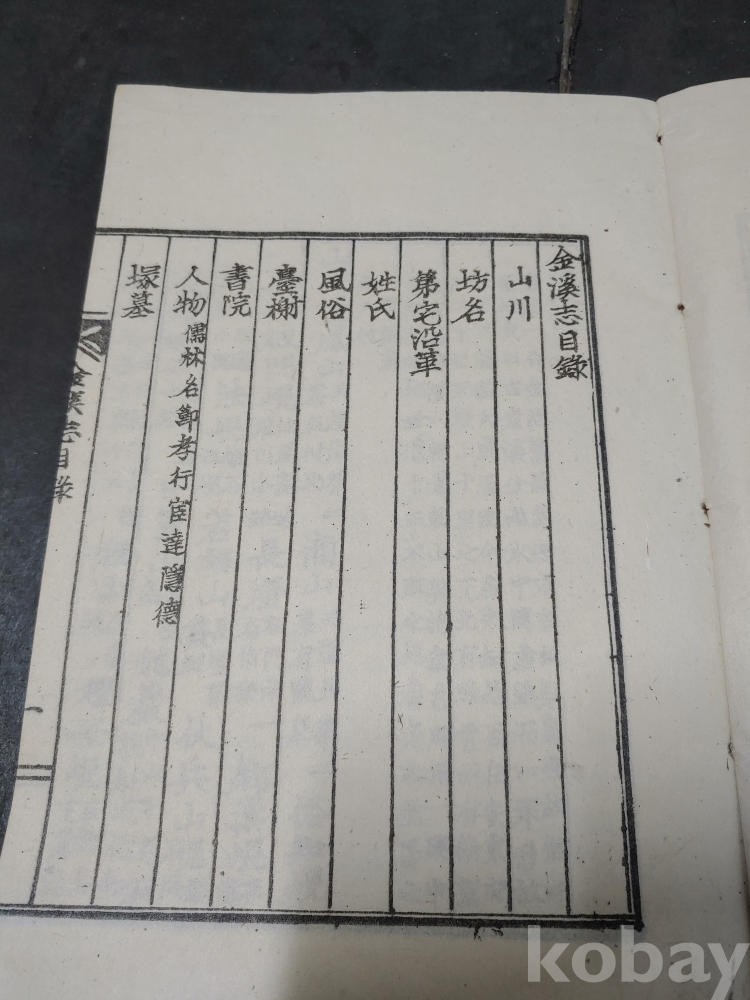 金溪志目錄
山川
坊名
第宅沿革
姓氏
風俗
臺榭
書院
人物 儒林 名節 孝行 宦達 隱德
塚墓
金溪志目錄
kobay